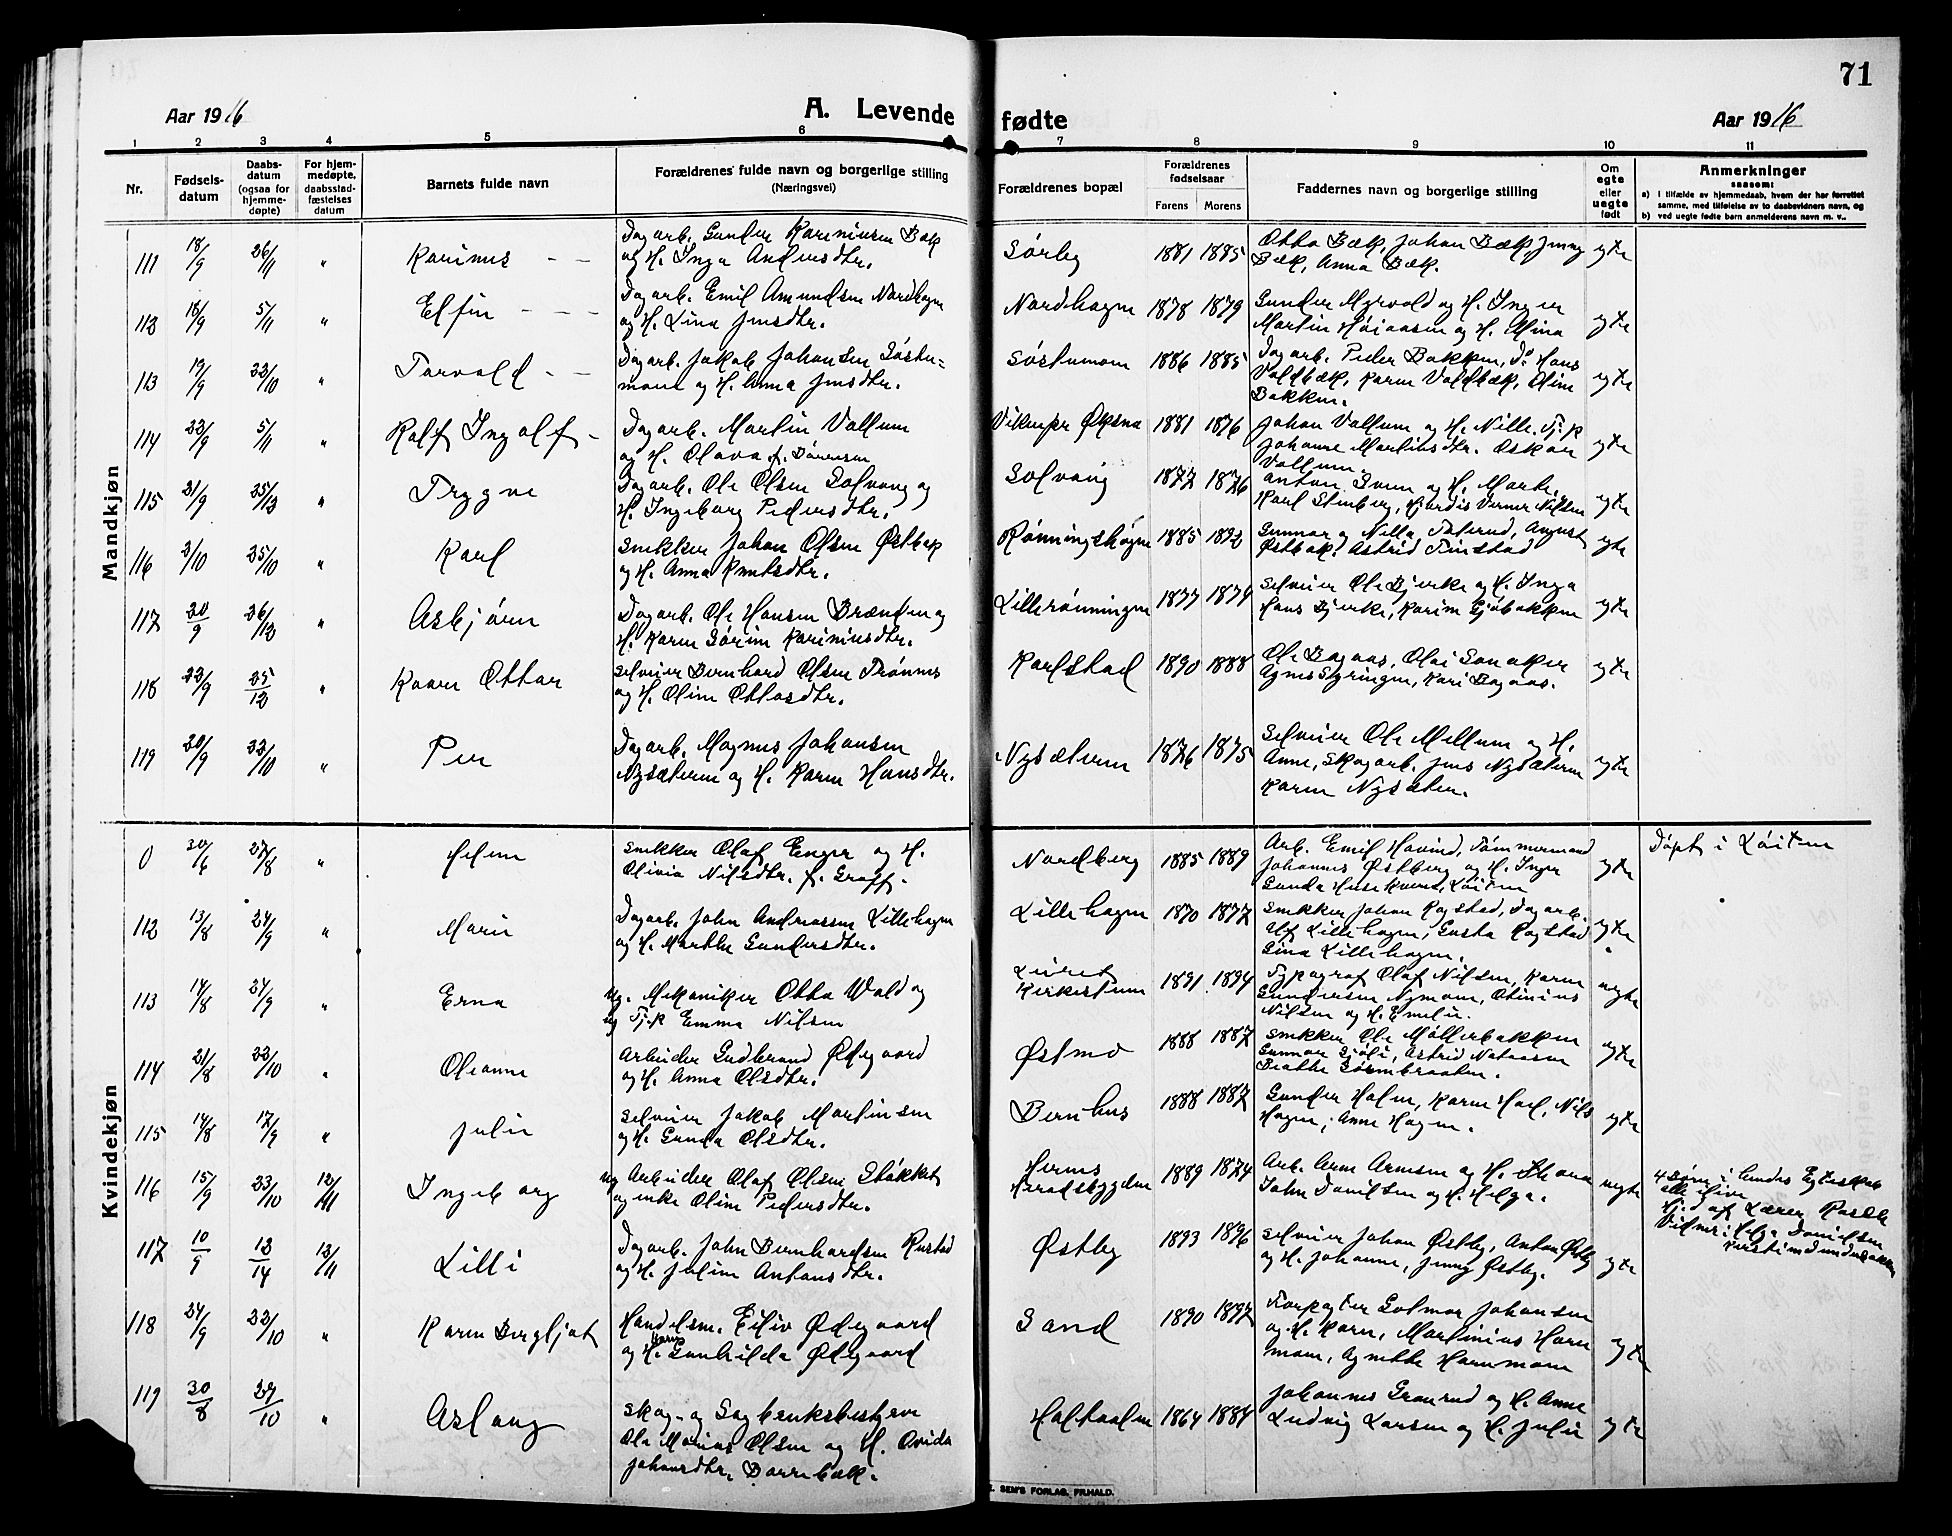 71
Aar 1916
A. Levende fødte
Aar 1916
1 2 3 4 5 6 7 8 9 10 11
Nr.
Fødsels-
datum
Daabs-
datum
(ogsaa for
hjemme-
døpte)
For hjem-
medøpte,
daabsstad-
fæstelses
datum
Barnets fulde navn
Forældrenes fulde navn og borgerlige stilling
(Næringsvei)
Forældrenes bopæl
Forældrenes
fødselsaar
Farens Morens
Faddernes navn og borgerlige stilling
Om
egte
eller
uegte
født
Anmerkninger
saasom:
a) i tilfælde av hjemmedaab, hvem der har forrettet
samme, med tilføielse av to daabsvidners navn, og
b) ved uegte fødte børn anmelderens navn m. v..
Mandkjøn
111 18/9 26/11 " Karinus - -
Dagarb. Gunder Kareniusen Bæk
og H. Inga Andersdtr.
Sørby 1881 1885
Otto Bæk, Johan Bæk, Jenny
Bæk, Anna Bæk.
egte
112 18/9 5/11 " Elfin - - -
Dagarb. Emil Amundsen Nordhagen
og H. Lina Jensdtr.
Nordhagen 1878 1879
Gunder Myrvold og H. Inger
Martin Høiaasen og H. Mina
egte
113 19/9 22/10 " Torvald - -
Dagarb. Jakob Johansen Søstu-
moen og H. Anna Jensdtr.
Søstumoen 1886 1885
Dagarb. Peder Bakken, Do Hans
Voldbæk, Karen Voldbæk, Oline
Bakken.
egte
114 22/9 5/11 " Rolf Ingolf -
Dagarb. Martin Vollum
og H. Olava f. Sørensen
Øksna 1881 1876
Johan Vollum og H. Nille. Tj.p
Johanne Martinsdtr. Oskar
Vollum.
egte
115 21/9 25/12 " Trygve
Dagarb. Ole Olsen Solvang og
H. Ingeborg Pedersdtr.
Solvang 1872 1876
Anton Sveen og H. Marte,
Karl Stenberg, Hjørdis Verner Nilsen
egte
116 2/10 25/10 " Karl
Snekker Johan Olsen Østbak
og H. Anna Knutsdtr.
Rønningshagen 1885 1892
Gunnar og Nilla Taterud, August
Østbak, Astrid Finstad
egte
117 20/9 26/12 " Asbjørn
Dagarb. Ole Hansen Brænden og
H. Karen Sørine Kariniusdtr.
Lillerønningen 1877 1879
Selveier Ole Bjerke og H. Inga
Hans Bjerke, Karine Sjøbakken
egte
118 22/9 25/12 " Kaare Ottar
Selveier Bernhard Olsen Trønnes
og H. Oline Ottosdtr.
Karlstad 1890 1888
Ole Bagaas, Olai Sonaker
Agnes Styringen, Kari Bagaas.
egte
119 20/9 22/10 " Per
Dagarb. Magnus Johansen
Nysæteren og H. Karen Hansdtr.
Nysæteren 1876 1875
Selveier Ole Mellum og H.
Anne, Skogarb. Jens Nysæteren
Karen Nysæter.
egte
Kvindekjøn
0 20/6 27/8 " Helene
Snekker Olaf Enger og H.
Olivia Nilsdtr. f. Graff.
Nordberg 1885 1889
Arb. Emil Hovind, Tømmermand
Johannes Østberg og H. Inger
Gunda Husekveen, Løiten
egte
Døpt i Løiten
112 13/8 24/9 " Marie
Dagarb. John Andreassen Lillehagen
og H. Marthe Gundersdtr.
Lillehagen 1870 1877
Snekker Johan Rogstad, Dagarb.
Alf Lillehagen, Gusta Rogstad
Gina Lillehagen.
egte
113 14/8 24/9 " Erna
ug. Mekaniker Otto Wold og
ug Tj.p Emma Nilsen
Kirkestuen 1891 1894
Typograf Olaf Nilsen, Karen
Gundersen Nymoen, Otinius
Nilsen og H. Emelie.
uegte
114 21/8 22/10 " Oleanne
Arbeider Gudbrand Ødegaard
og H. Anna Olsdtr.
Østmo 1888 1887
Snekker Ole Møllerbakken
Gunnar Sjøli, Astrid Nataasen
Beathe Sørenbraaten.
egte
115 14/8 17/9 " Julie
Selveier Jakob Martinsen
og H. Gunda Olsdtr.
Bernhus 1888 1887
Gunder Holm, Karen Hoel, Nils
Hagen, Anne Hagen.
egte
116 15/9 22/10 12/11 Ingeborg
ug Arbeider Olaf Olsen Stokket
og enke Oline Pedersdtr.
Hernes
Heradsbygden 1889 1874
Arb. Arne Arnesen og H. Thora
John Danielsen og H. Helga.
uegte
117 10/9 12/14 12/11 Lilli
Dagarb. John Bernhardsen Rustad
og H. Juline Antonsdtr.
Østby 1893 1896
Selveier Johan Østby, Anton Østby
og H. Johanne, Jenny Østby.
egte
118 24/9 22/10 " Karen Bergljot
Handelsm. Eiliv Ødegaard
og H. Gunhilda Ødegaard
Sand 1890 1897
Forpagter Golmar Johansen
og H. Karen, Martinius Horn
moen, Agnethe Hornmoen
egte
119 30/8 29/10 " Aslaug
Skog- og Sagbruksbestyrer
Ole Marius Olsen og H. Ovida
Johansdtr. Borrebæk.
Holtaalen 1864 1884
Johannes Granrud og H. Anne
Ludvig Larsen og H. Julie
egte
SEM'S FORLAG, FR.HALD.